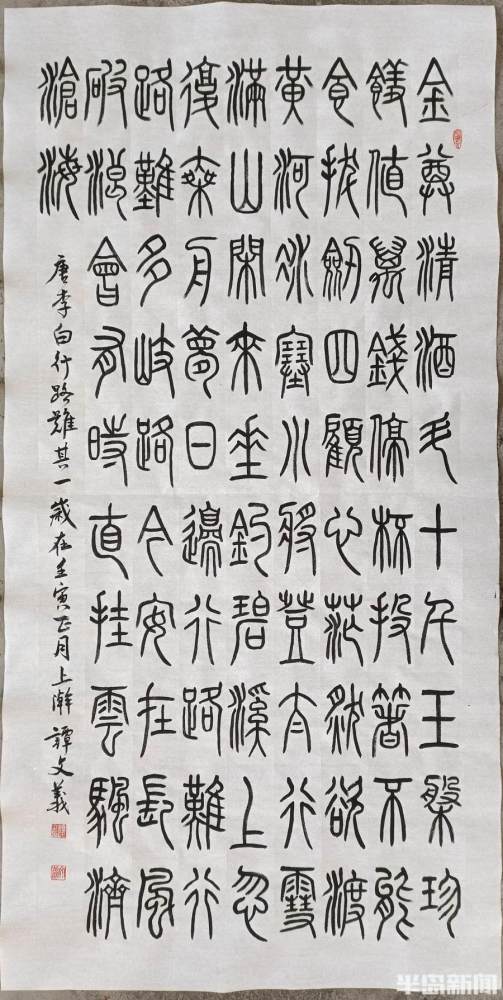 金尊清酒斗十千玉盤珍
饈值萬錢停杯投箸不能
食拔劍四顧心茫然欲渡
黃河冰塞川將登太行雪
滿山閑來垂釣碧溪上忽
復乘舟夢日邊行路難行
路難多岐路今安在長風
破浪會有時直挂雲颿濟
滄海
唐李白行路難其一歲在壬寅正月上澣譚文義
半岛新闻